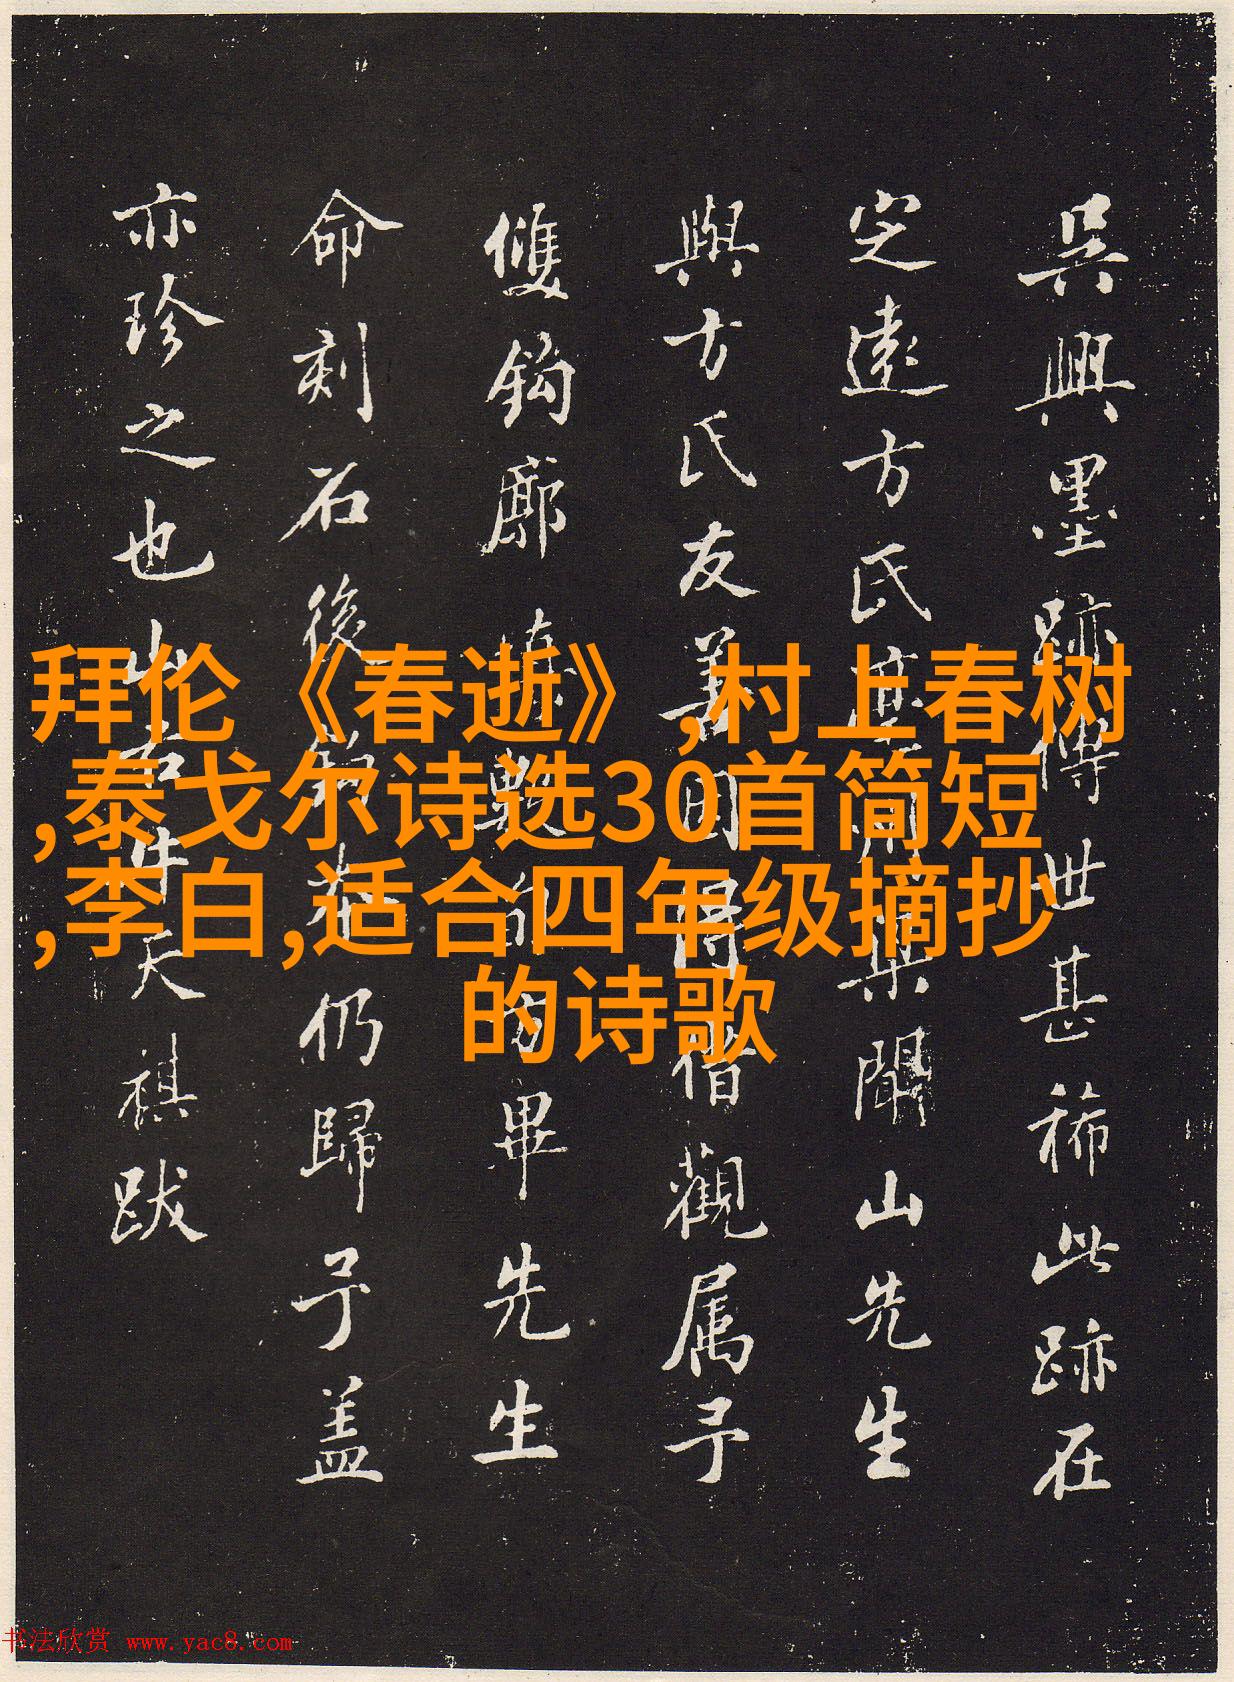 吳興墨跡傳世甚稀此跡在
定遠方氏 聞山先生
與方氏友善因得借觀属予
雙鈎廓填 畢先生
命刻石後 仍歸予盖
亦珍之也山右牛天祺跋
拜伦《春逝》,村上春树
,泰戈尔诗选30首简短
,李白,适合四年级摘抄
的诗歌
书法欣赏 www.yac8.com